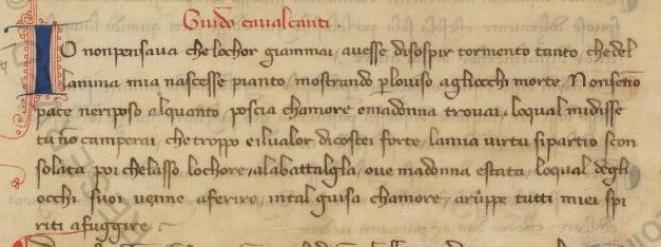 Guido caualcanti.
IO nonpensaua che lochor giammai, auesse disospir tormento tanto, chedel
lanima mia nascesse pianto, mostrando ꝑlouiso agliocchi morte, Nonsētio
pace neriposo alquanto, poscia chamore emadonna trouai, loqual midisse
tu nō camperai, che troppo eiluaIor dicostei forte, lamia uirtu sipartio scon
solata poi chelasso lochore, alabattalgla, oue madonna estata, loqual degli
occhi suoi uenne aferire, intal guisa chamore, arūppe tutti miei spi
riti afuggire